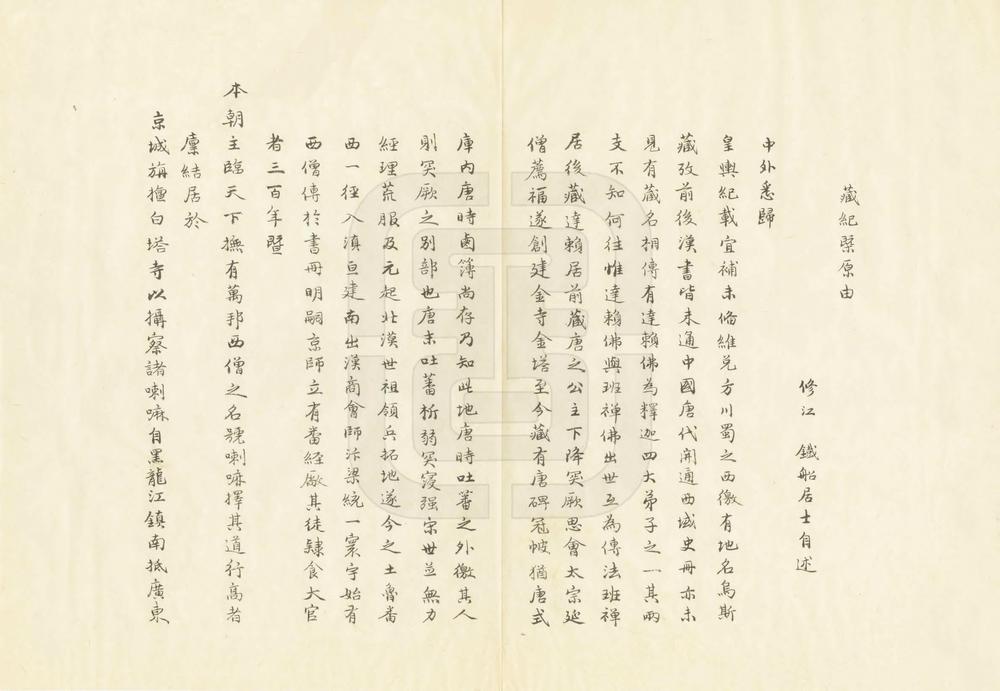 藏紀槩原由
修江 鐵船居士自述
中外悉歸
皇輿紀載宜補未備維兌方川蜀之西徼有地名烏斯
藏攷前後漢書皆未通中國唐代開通西域史冊亦未
見有藏名相傳有達賴佛為釋迦四大弟子之一其兩
支不知何往惟達賴佛與班禪佛出世互為傳法班禪
居後藏達賴居前藏唐之公主下降突厥思會太宗延
僧薦福遂創建金寺金塔至今藏有唐碑冠帔猶唐式
庫內唐時鹵簿尚存乃知此地唐時吐蕃之外徼其人
則突厥之別部也唐末吐蕃析弱突寖強宋世並無力
經理荒服及元起北漠世祖領兵拓地遂今之土魯番
西一徑入滇亘建南出漢商會師汴梁統一寰宇始有
西僧傳於書冊明嗣京師立有番經廠其徒隸食大官
者三百年暨
本朝主臨天下撫有萬邦西僧之名號喇嘛擇其道行高者
廩結居於
京城旃檀白塔寺以攝察諸喇嘛自黑龍江鎮南抵廣東